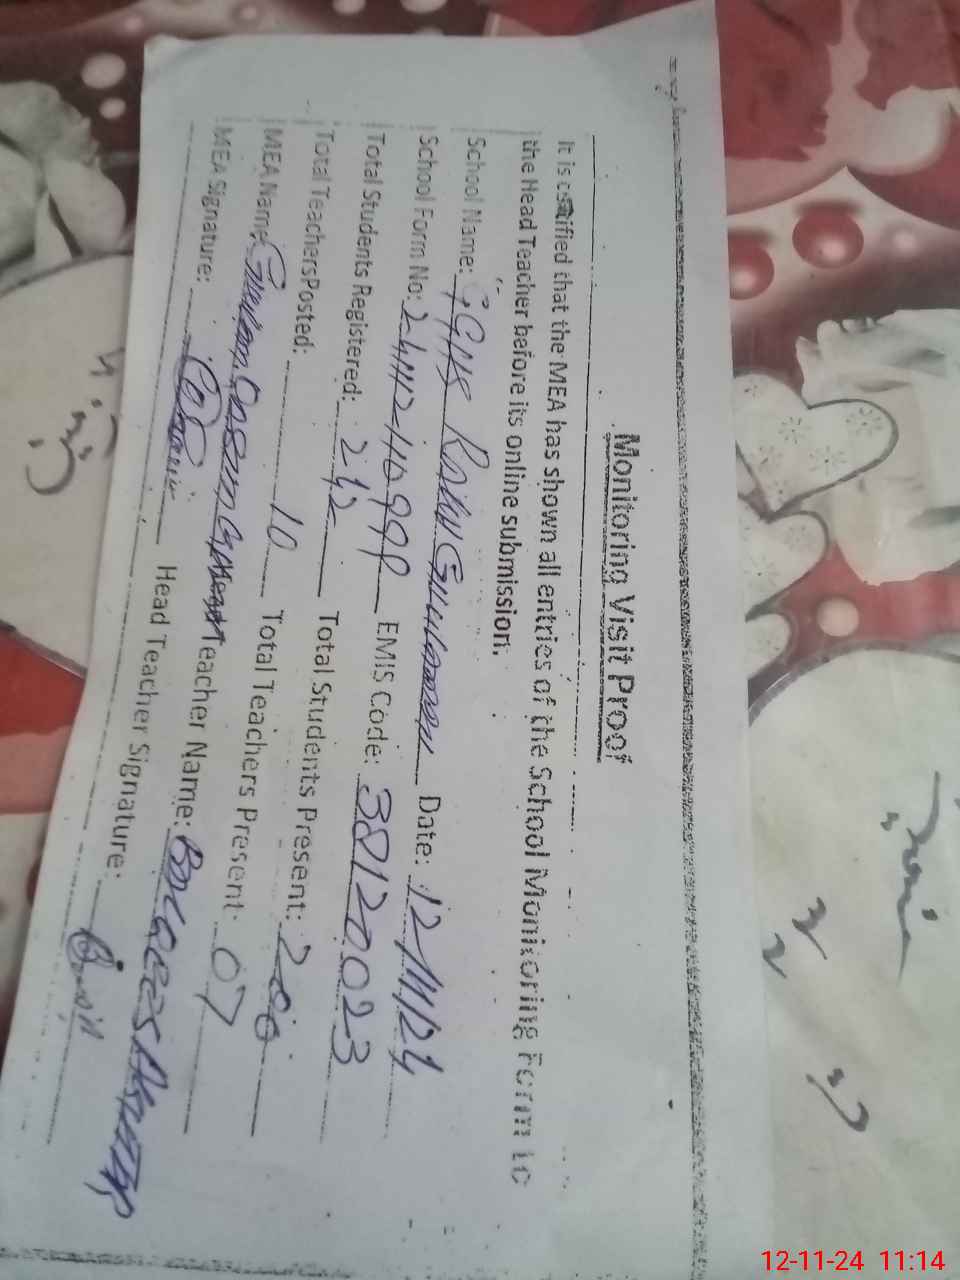 Monitoring Visit Proof
It is certified that the MEA has shown all entries of the School Monitoring Form to
the Head Teacher before its online submission.
School Name: GGHS Date: 12/11/24
School Form No: EMIS Code: 38120023
Total Students Registered: 242 Total Students Present: 200
Total Teachers Posted: 10 Total Teachers Present: 07
MEA Name: Teacher Name:
MEA Signature: Head Teacher Signature:
12-11-24 11:14